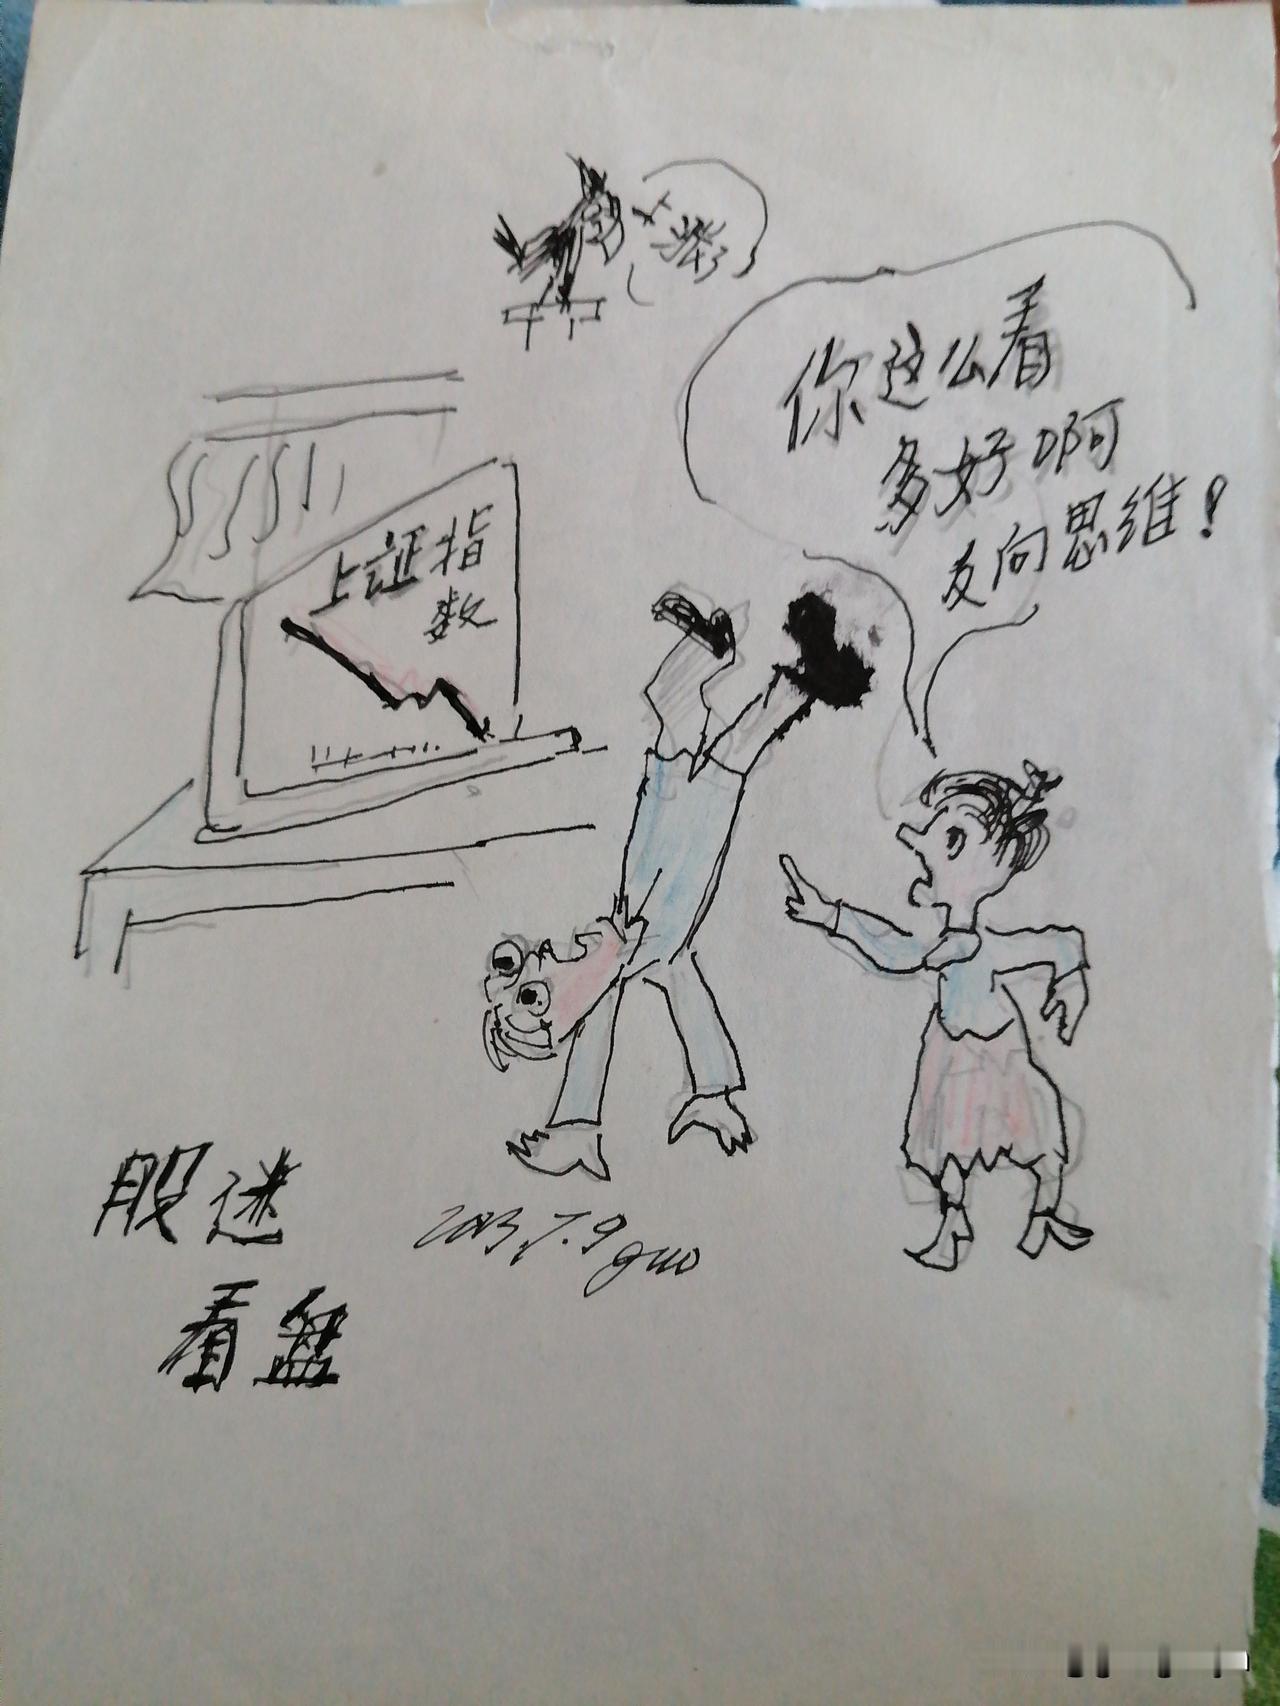 涨了
你这么看
多好啊
反向思维！
上证指
数
股迷
看盘
guo